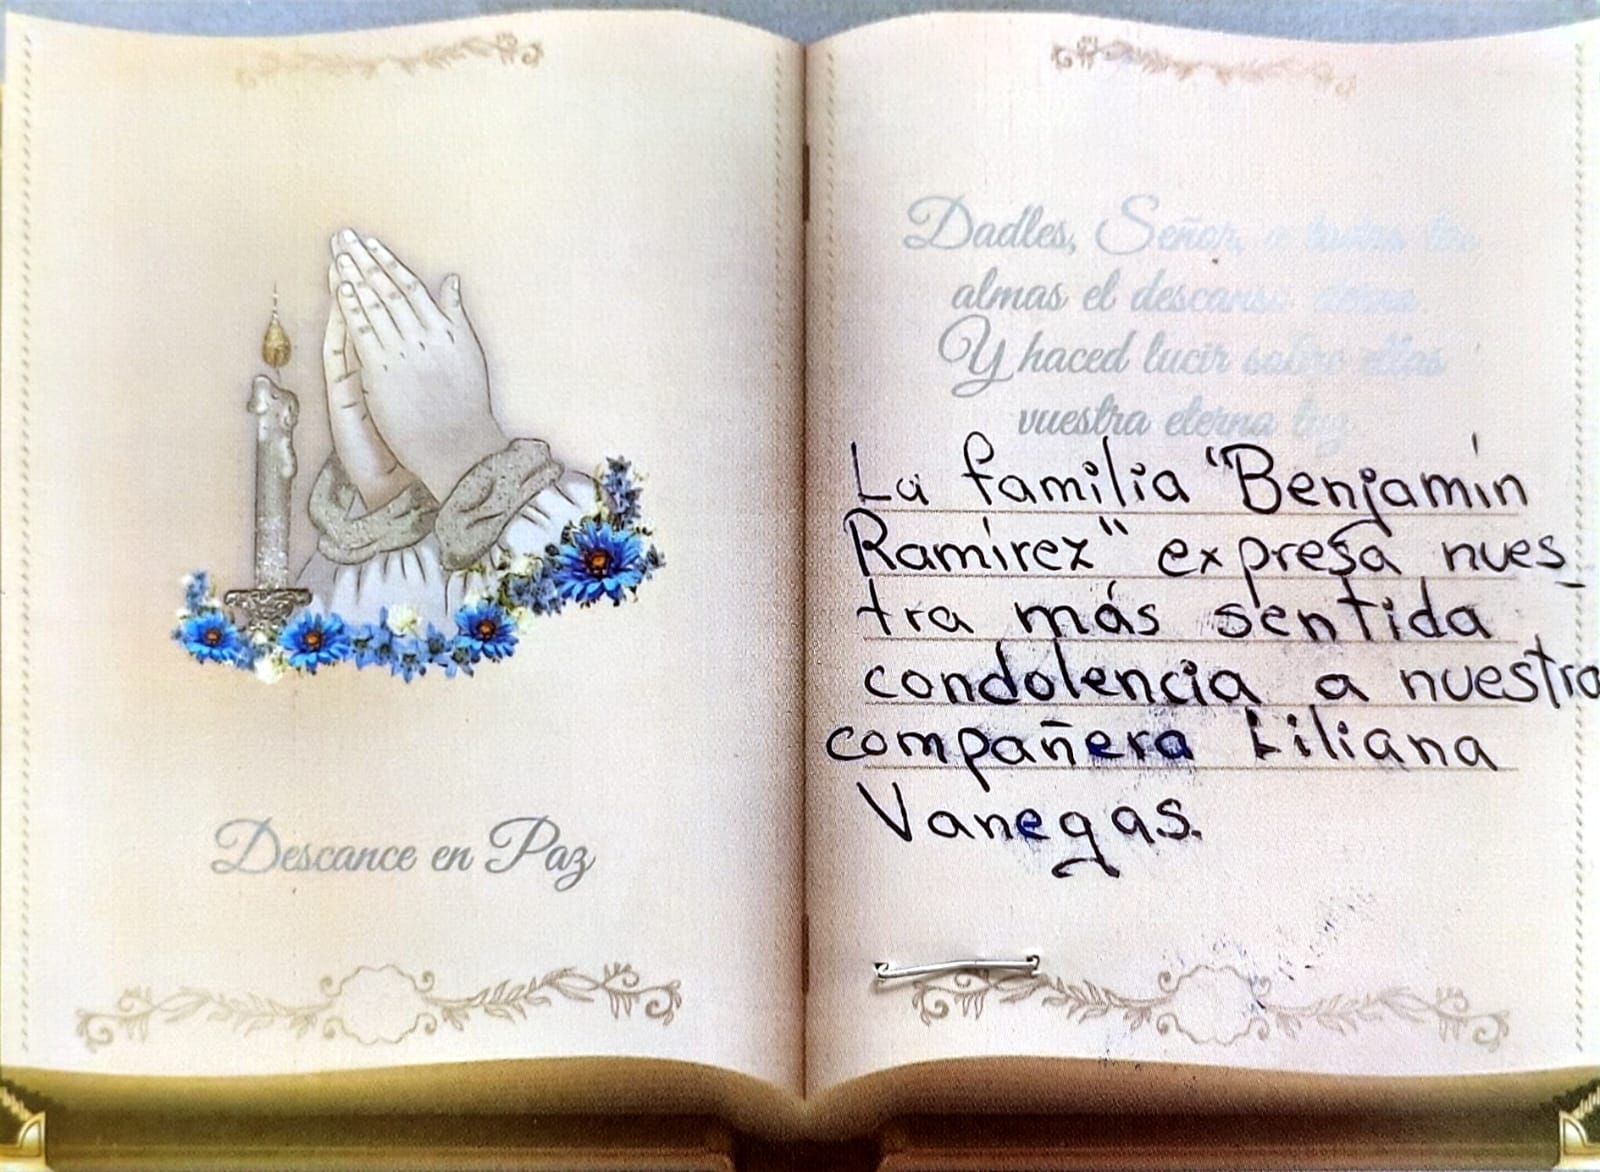 Descance en Paz
Dadles, Señor, a todas las
almas el descanso eterno
Y haced lucir sobre ellas
vuestra eterna luz
La familia "Benjamín
Ramírez" expresa nues_
tra más sentida
condolencia a nuestra
compañera Liliana
Vanegas.